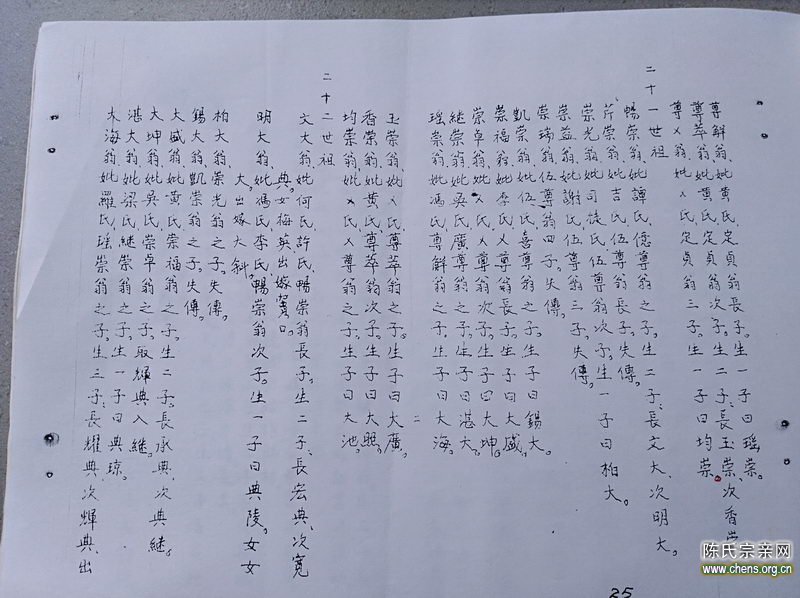 尊觧翁、妣黄氏、定貞翁長子。生一子曰瑶崇。
尊萃翁、妣黄氏、定貞翁次子。生二子、長玉崇、次香崇
尊乂翁、妣乂氏、定貞翁三子。生一子曰均崇。
二十一世祖
暢崇翁、妣譚氏、億尊翁之子。生二子、長文大、次明大。
芹崇翁、妣吉氏、伍尊翁長子。失傳。
崇光翁、妣司徒氏、伍尊翁次子。生一子曰柏大。
崇益翁、妣謝氏、伍尊翁三子。失傳。
崇瑞翁、伍尊翁四子。失傳。
凱崇翁、妣伍氏、喜尊翁之子。生子曰錫大。
崇福翁、妣李氏、乂尊翁長子。生子曰大盛。
崇卓翁、妣乂氏、乂尊翁次子。生子曰大坤。
继崇翁、妣吴氏、廣尊翁之子。生子曰湛大。
瑶崇翁、妣馮氏、尊觧翁之子。生子曰大海。
玉崇翁、妣乂氏、尊萃翁之子。生子曰大廣。
香崇翁、妣黄氏、尊萃翁次子。生子曰大熙。
均崇翁、妣乂氏、乂尊翁之子。生子曰大池。
二十二世祖
文大翁、妣何氏、許氏、暢崇翁長子。生二子、長宏典、次寬
典。女梅英出嫁寳口。
明大翁、妣馮氏、李氏、暢崇翁次子。生一子曰典陵。女女
大、出嫁大斜。
柏大翁、崇光翁之子。失傳。
錫大翁、凱崇翁之子。失傳。
大盛翁、妣黄氏、崇福翁之子。生二子、長承典、次典継。
大坤翁、妣吴氏、崇卓翁之子。取輝典入継。
湛大翁、妣梁氏、継崇翁之子。生一子曰典琼。
大海翁、妣羅氏、瑶崇翁之子。生三子、長耀典、次輝典、出
25
陈氏宗亲网
www.chens.org.cn